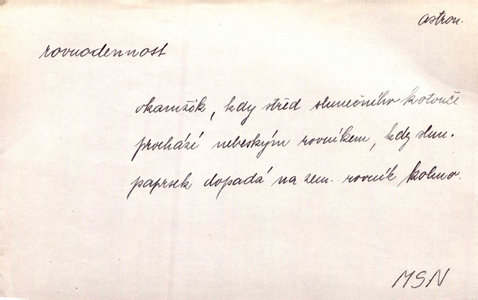 astron.
rovnodennost
okamžik, kdy střed slunečního kotouče
prochází nebeským rovníkem, kdy slun.
paprsek dopadá na zem. rovník kolmo.
MSN